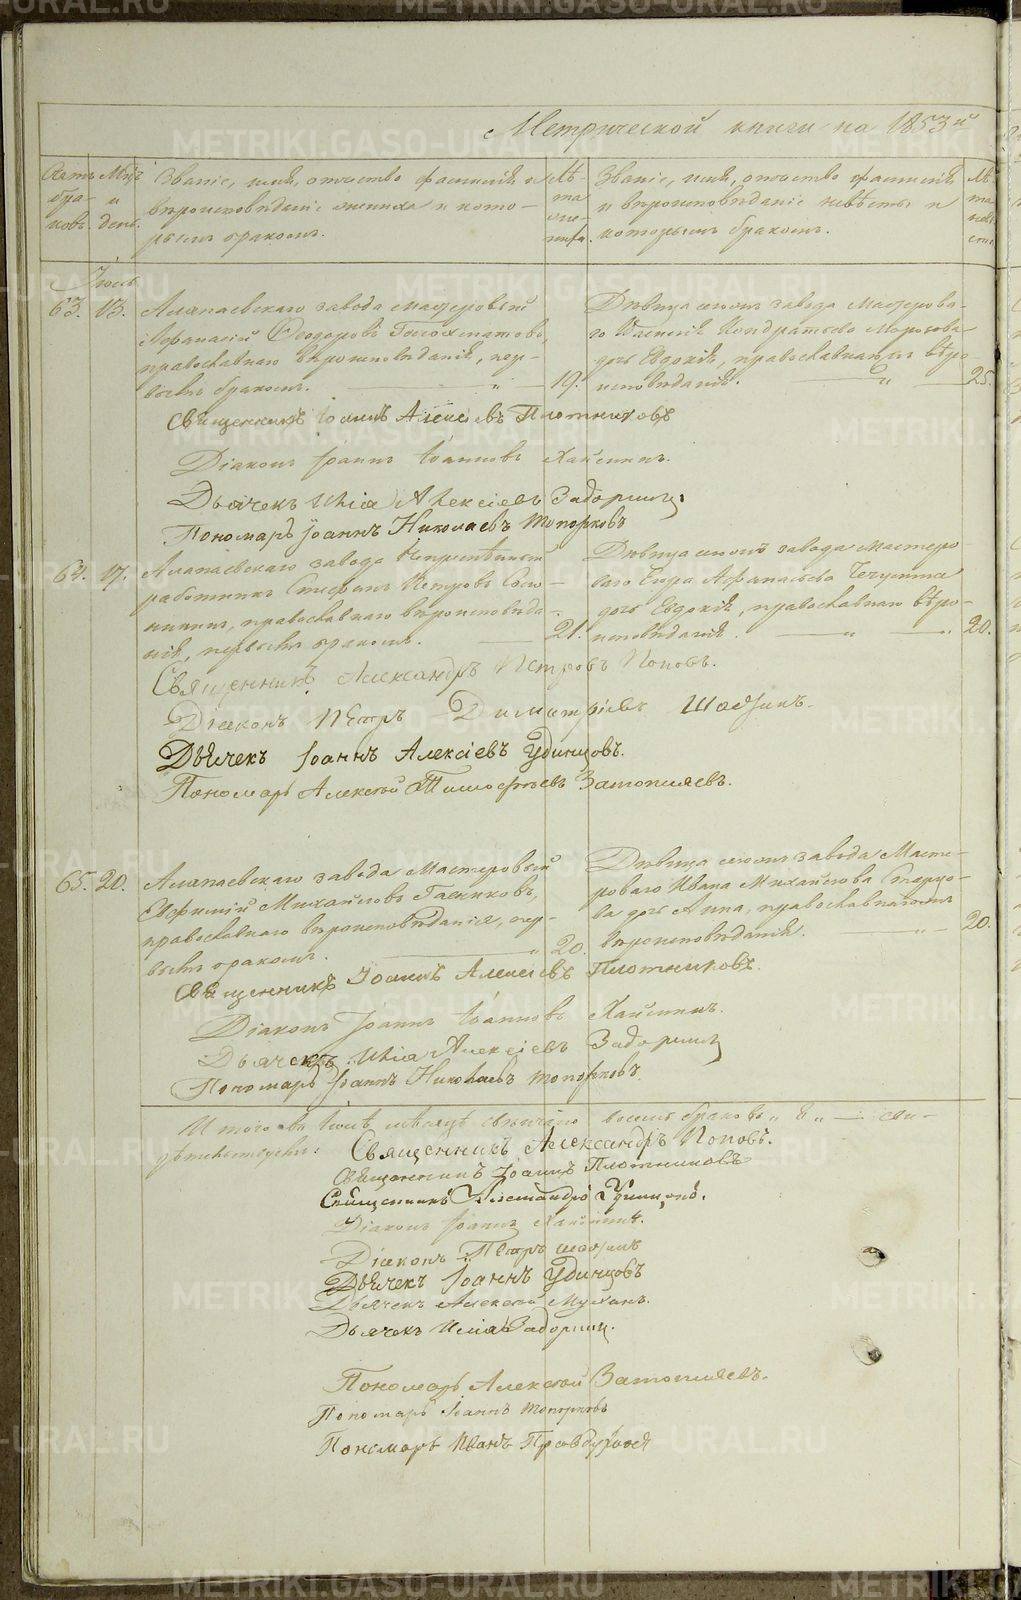 Метрической книги на 1853й
Счетъ бра- ковъ.
Мцъ и день.
Званіе, имя, отчество фамилія и
вѣроисповѣданіе жениха и кото-
рымъ бракомъ.
Лѣ- та же- ниха.
Званіе, имя, отчество фамилія
и вѣроисповѣданіе невѣсты и
которымъ бракомъ.
Лѣ- та невѣ сты.
Іюль
63. 13. Алапаевскаго завода мастеровый
Афанасій Ѳеодоровъ
православнаго вѣроисповѣданія, пер-
вымъ бракомъ. — „ — 19.
Дѣвица сегожъ завода Мастерова-
го Кондратьева Морозова
дочь Евдокія, православнаго вѣро-
исповѣданія. — „ — 25.
Священникъ Іоаннъ Алексіевъ Плотниковъ
Діаконъ Іоаннъ Іоанновъ Хайминъ.
Дьячекъ Илія Алексіевъ Задоринъ
Пономарь Іоаннъ Николаевъ Топорковъ
64. 17. Алапаевскаго завода Непремѣнный
работникъ Стефанъ Петровъ
православнаго вѣроисповѣда-
нія, первымъ бракомъ. — 21.
Дѣвица сегожъ завода мастеро-
ваго Афанасьева
дочь Евдокія, православнаго вѣро-
исповѣданія. — „ — 20.
Священникъ Александръ Петровъ Поповъ.
Діаконъ Петръ Димитріевъ
Дьячекъ Іоаннъ Алексіевъ Удинцовъ.
Пономарь Алексѣй Тимофѣевъ Затопляевъ.
65. 20. Алапаевскаго завода Мастеровый
Евфимій Михайловъ
православнаго вѣроисповѣданія, пер-
вымъ бракомъ. — „ 20.
Дѣвица сегожъ завода Масте-
роваго Ивана Михайлова
дочь Анна, православнаго
вѣроисповѣданія. — „ — 20.
Священникъ Іоаннъ Алексіевъ Плотниковъ.
Діаконъ Іоаннъ Іоанновъ Хайминъ.
Дьячекъ Илія Алексіевъ Задоринъ
Пономарь Іоаннъ Николаевъ Топорковъ.
Итого въ Іюлѣ мѣсяцѣ вѣнчано восемь браковъ „ 8 „ — сви-
дѣтельствуемъ:
Священникъ Александръ Поповъ.
Священникъ Іоаннъ Плотниковъ
Священникъ Александръ Удинцовъ.
Діаконъ Іоаннъ Хайминъ.
Діаконъ Петръ
Дьячекъ Іоаннъ Удинцовъ
Дьячекъ Алексѣй
Дьячекъ Илія Задоринъ.
Пономарь Алексѣй Затопляевъ.
Пономарь Іоаннъ Топорковъ
Пономарь Иванъ
METRIKI.GASO-URAL.RU